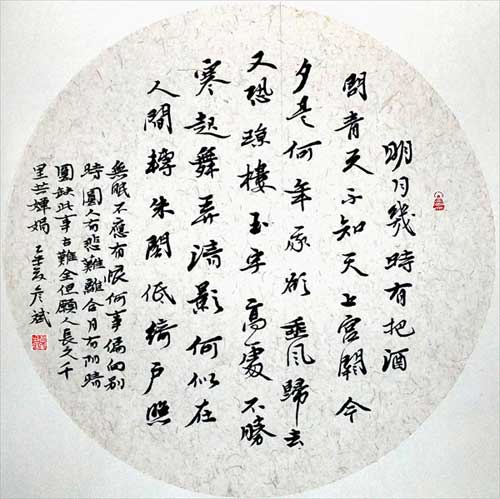 明月幾時有把酒
問青天不知天上宮闕今
夕是何年我欲乘風歸去
又恐瓊樓玉宇高處不勝
寒起舞弄清影何似在
人間轉朱閣低綺戶照
無眠不應有恨何事偏向別
時圓人有悲歡離合月有阴晴
圓缺此事古難全但願人長久千
里共嬋娟 彦斌